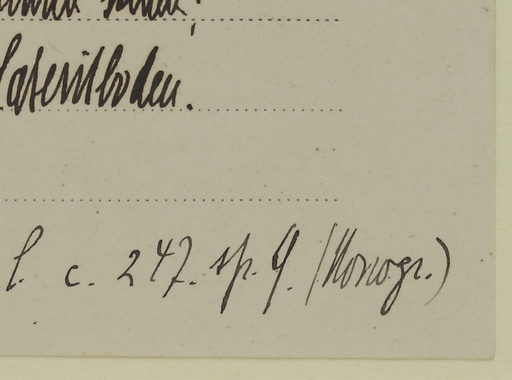 Lateritboden.
l. c. 247. sp. 9. (Monogr.)